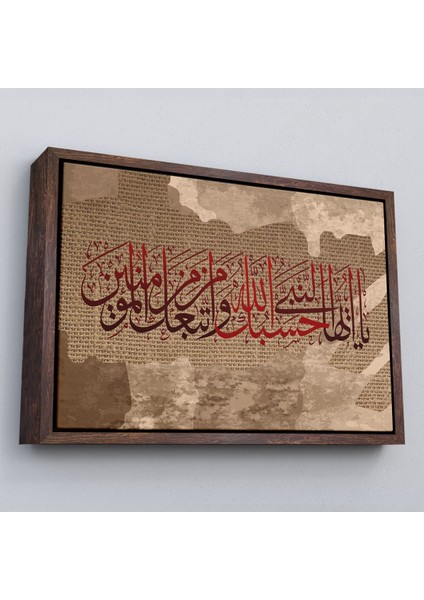 يا ايها النبي حسبك الله ومن اتبعك من المؤمنين